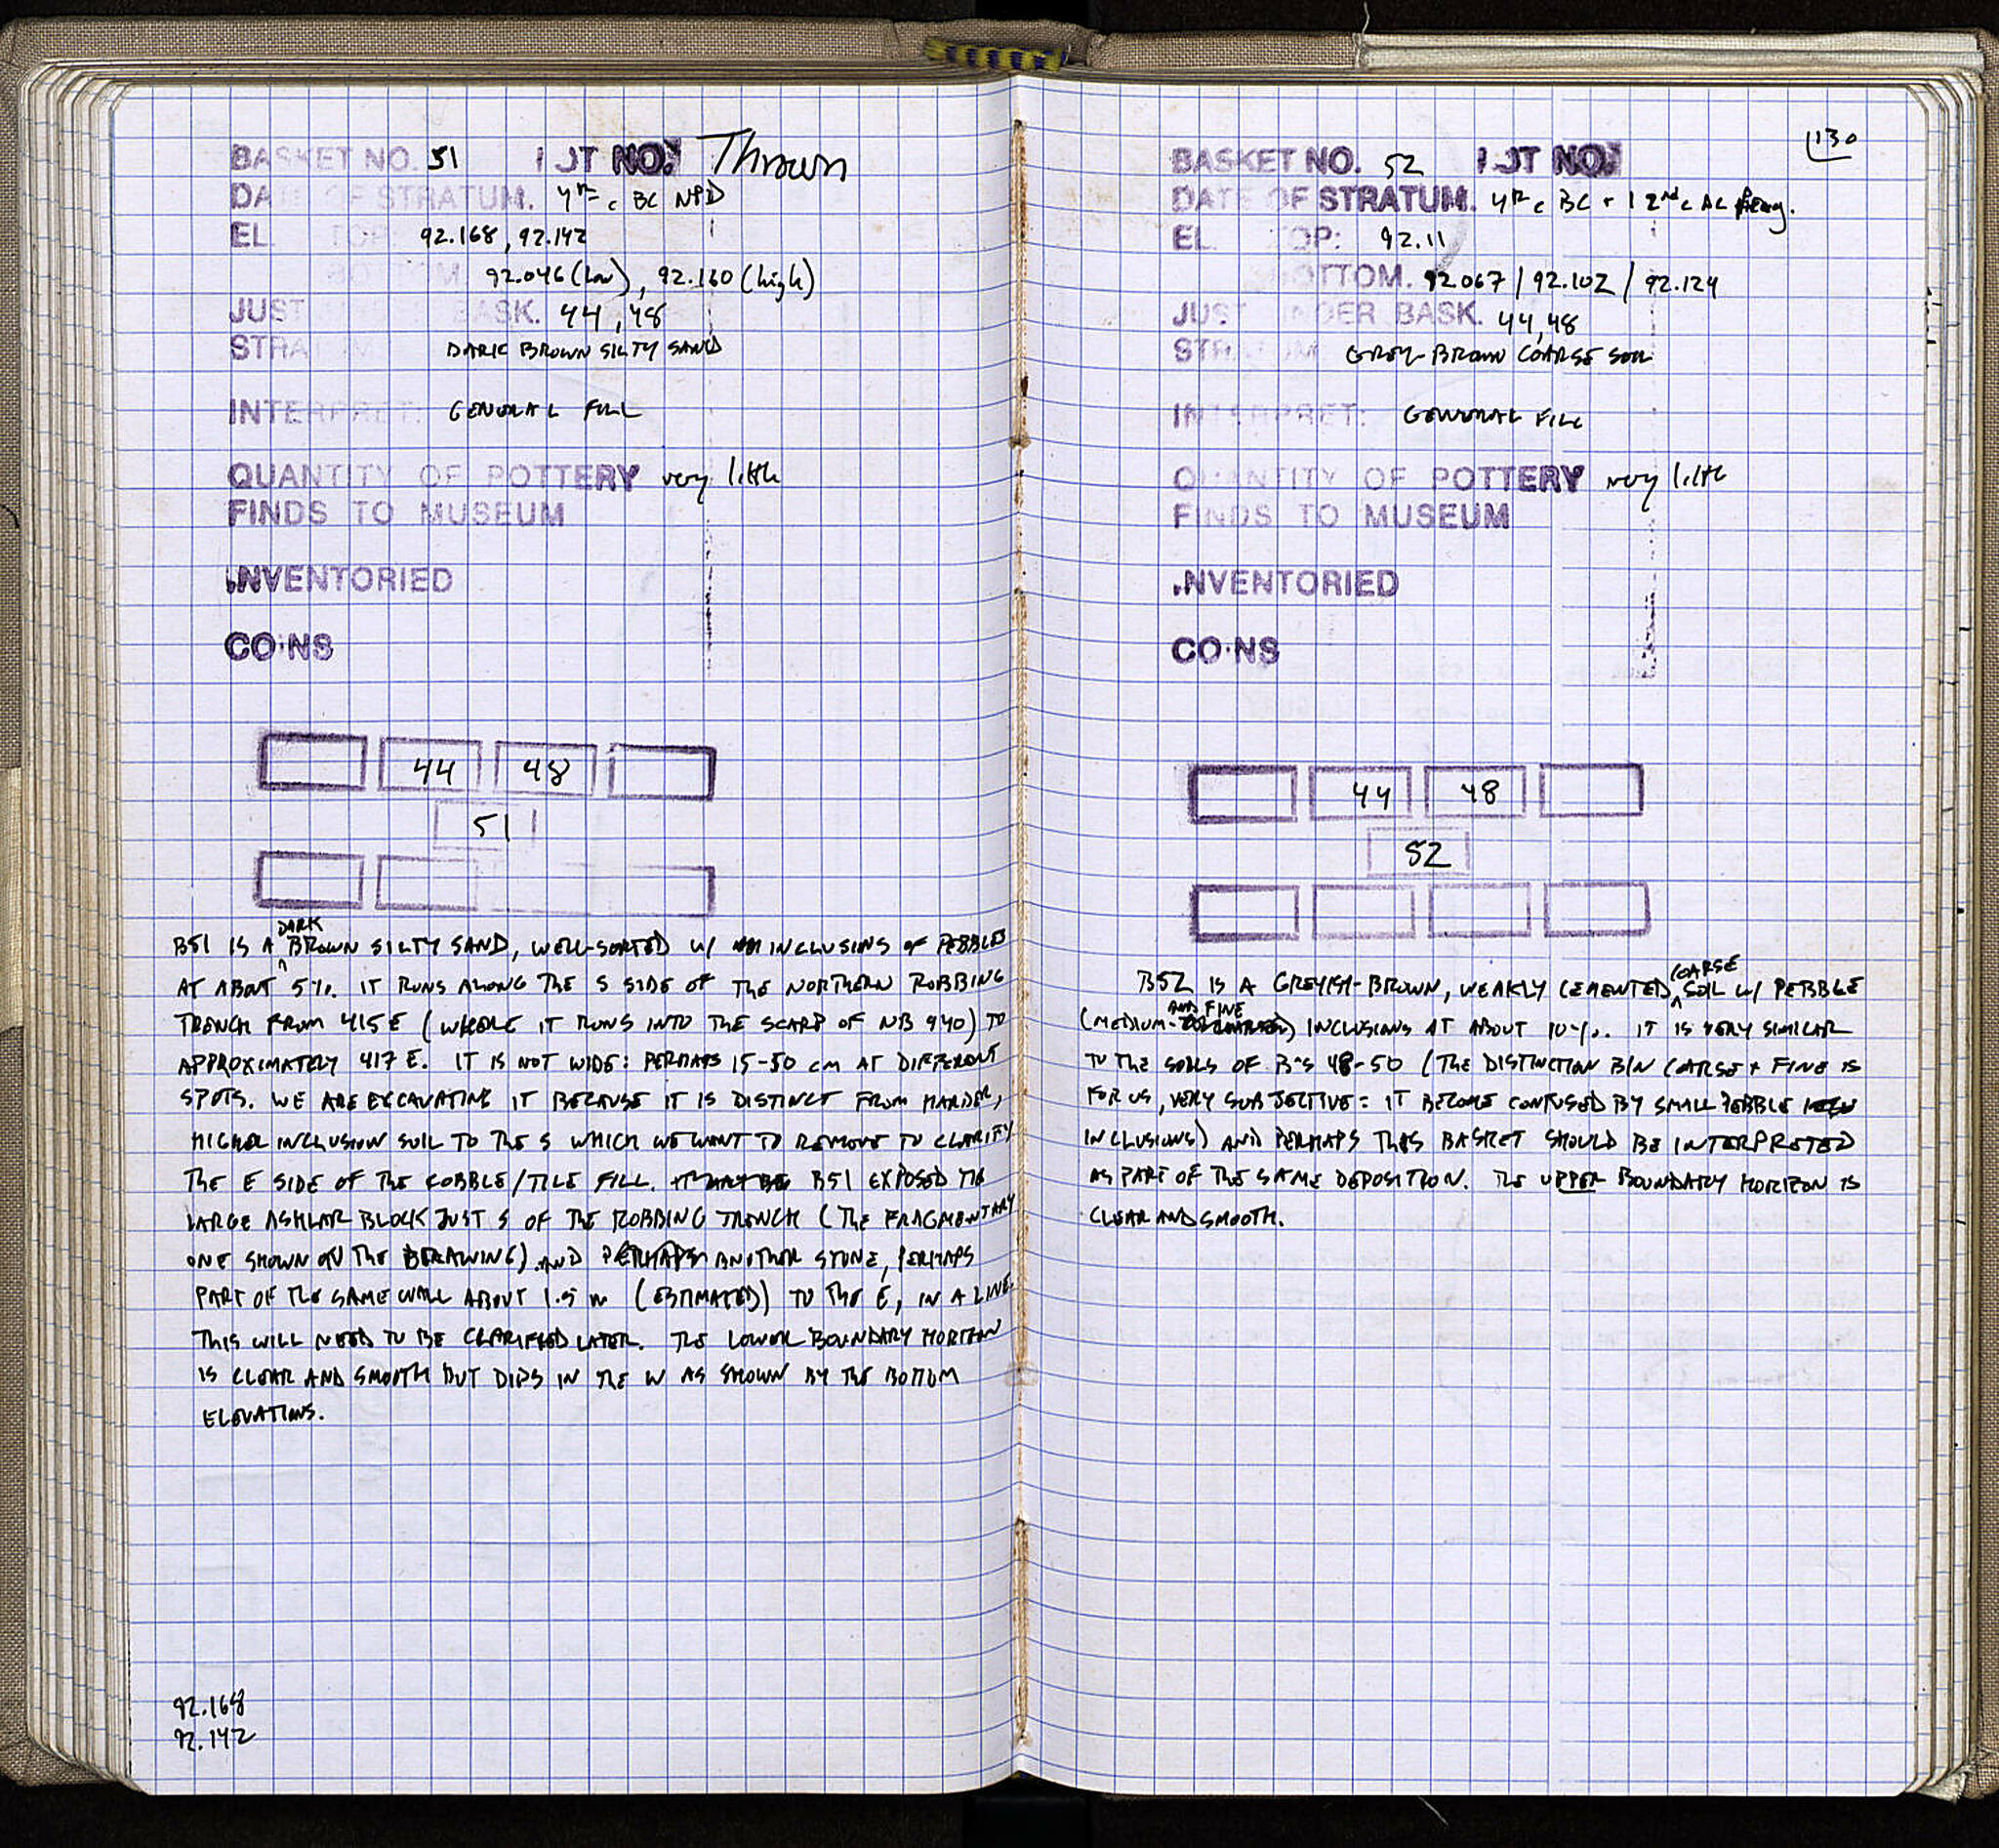 BASKET NO. 51 LOT NO. Thrown
DATE OF STRATUM. 4th c BC NPD
EL TOP 92.168, 92.142
BOTTOM. 92.046 (low), 92.160 (high)
JUST UNDER BASK. 44, 48
STRATUM DARK BROWN SILTY SAND
INTERPRET: GENERAL FILL
QUANTITY OF POTTERY very little
FINDS TO MUSEUM
INVENTORIED
COINS
44 48
51
B51 IS A DARK BROWN SILTY SAND, WELL-SORTED W/ INCLUSIONS OF PEBBLES
AT ABOUT 5%. IT RUNS ALONG THE S SIDE OF THE NORTHERN ROBBING
TRENCH FROM 415 E (WHERE IT RUNS INTO THE SCARP OF NB 940) TO
APPROXIMATELY 417 E. IT IS NOT WIDE: PERHAPS 15-50 CM AT DIFFERENT
SPOTS. WE ARE EXCAVATING IT BECAUSE IT IS DISTINCT FROM HARDER,
HIGHER INCLUSION SOIL TO THE S WHICH WE WANT TO REMOVE TO CLARIFY
THE E SIDE OF THE COBBLE/TILE FILL. IT MAY BE B51 EXPOSED THE
LARGE ASHLAR BLOCK JUST S OF THE ROBBING TRENCH (THE FRAGMENTARY
ONE SHOWN ON THE DRAWING) AND PERHAPS ANOTHER STONE, PERHAPS
PART OF THE SAME WALL ABOUT 1.5 m (ESTIMATED) TO THE E, IN A LINE.
THIS WILL NEED TO BE CLARIFIED LATER. THE LOWER BOUNDARY HORIZON
IS CLEAR AND SMOOTH BUT DIPS IN THE W AS SHOWN BY THE BOTTOM
ELEVATIONS.
92.168
92.142
130
BASKET NO. 52 LOT NO.
DATE OF STRATUM. 4th c BC + 1 2nd c AC frag.
EL TOP: 92.11
BOTTOM. 92.067 / 92.102 / 92.124
JUST UNDER BASK. 44, 48
STRATUM GREY-BROWN COARSE SOIL
INTERPRET: GENERAL FILL
QUANTITY OF POTTERY very little
FINDS TO MUSEUM
INVENTORIED
COINS
44 48
52
B52 IS A GREYISH-BROWN, WEAKLY CEMENTED COARSE SOIL W/ PEBBLE
(MEDIUM- AND FINE) INCLUSIONS AT ABOUT 10%. IT IS VERY SIMILAR
TO THE SOILS OF B's 48-50 (THE DISTINCTION B/N COARSE + FINE IS
FOR US, VERY SUBJECTIVE: IT BECOME CONFUSED BY SMALL PEBBLE
INCLUSIONS) AND PERHAPS THIS BASKET SHOULD BE INTERPRETED
AS PART OF THE SAME DEPOSITION. THE UPPER BOUNDARY HORIZON IS
CLEAR AND SMOOTH.